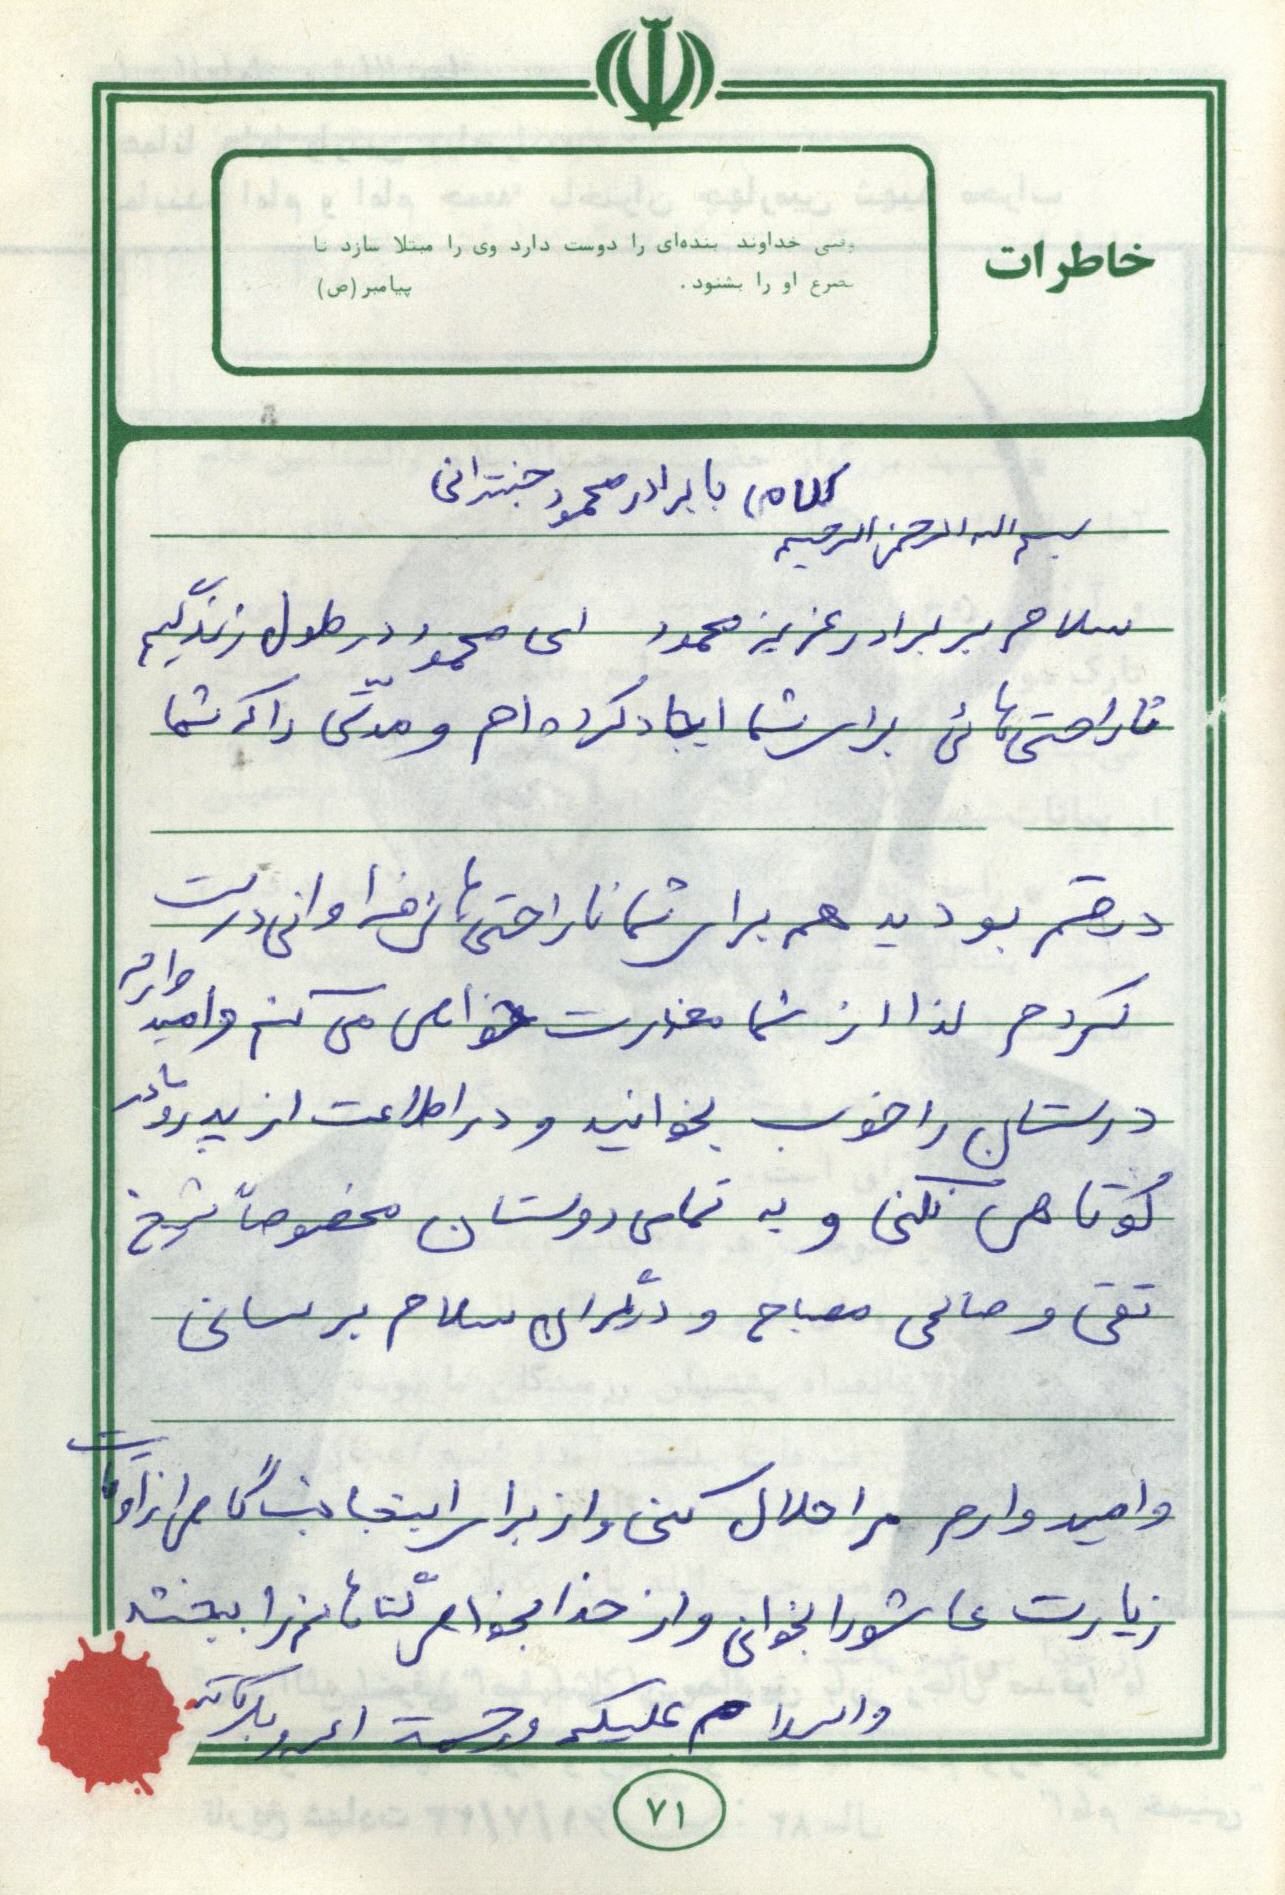 خاطرات
وقتی خداوند بنده‌ای را دوست دارد وی را مبتلا سازد تا
تضرع او را بشنود. پیامبر(ص)
کلامی با برادر محمود
بسم الله الرحمن الرحیم
سلام بر برادر عزیز محمود ای محمود در طول زندگیم
ناراحتی‌هائی برای شما ایجاد کرده‌ام و مدتی را که شما
در قم بودید هم برای شما ناراحتی‌های فراوانی درست
کردم لذا از شما معذرت خواهی می‌کنم و امید وارم
درستان را خوب بخوانید و در اطاعت از پدر و مادر
کوتاهی نکنی و به تمامی دوستان مخصوصاً شیخ
تقی و صالحی مصباح و دیگران سلام برسانی
و امید وارم مرا حلال کنی و از برای اینجانب گاهی از اوقات
زیارت عاشورا بخوانی و از خدا بخواهی گناهانم را ببخشد
والسلام علیکم و رحمة الله و برکاته
۷۱